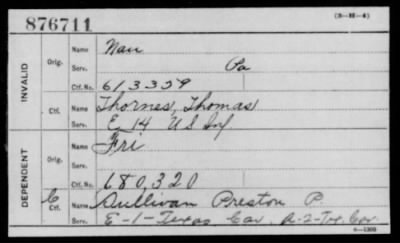 876711
(3-H-4)
INVALID
Orig.
Name Nau
Serv. Pa
Ctf. No. 613359
Ctf.
Name Thornes, Thomas
Serv. E 14 US Inf
DEPENDENT
Orig.
Name Fri
Serv.
Ctf. No. 680,320
C Ctf.
Name Sullivan Preston P.
Serv. E-1-Texas Cav. A-2-Tex. Cav.
6-1209